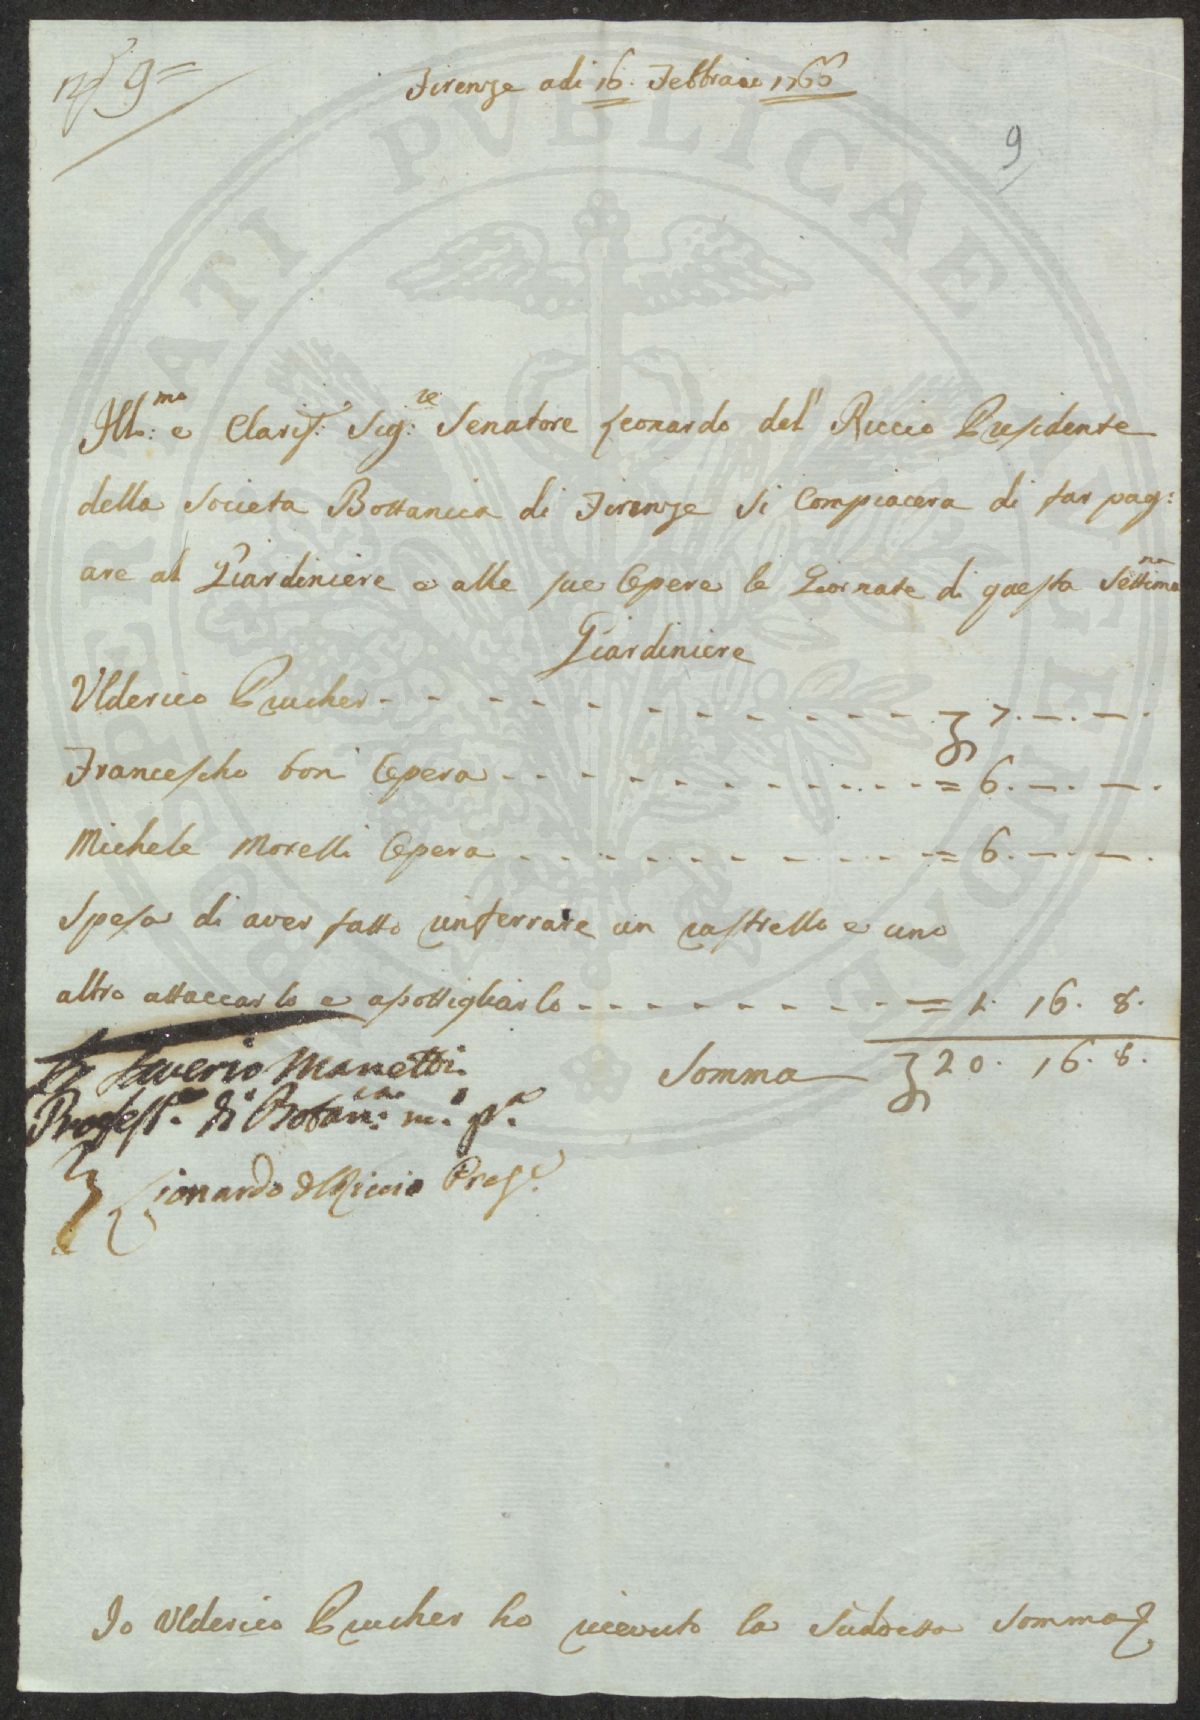 N° 9=
Firenze adi 16. Febbraio 1766
9
Ill:mo e Claris: Sig:re Senatore Leonardo del Riccio Presidente
della Societa Bottanica di Firenze Si Compiacera di far pag:
are al Giardiniere e alle sue Opere le Giornate di questa Settimana
Giardiniere
Ulderico Prucher 7. —. —.
Francescho boni Opera = 6. —. —.
Michele Morelli Opera = 6. —. —.
Spesa di aver fatto rinferrare un rastrello e uno
altro attaccarlo e = 1. 16. 8.
Saverio Manetti
Somma 20. 16. 8.
Profess.e di Botan:ca m.o p.a
Lionardo del Riccio Pres.e
Io Ulderico Prucher ho ricevuto la Sudetta Somma